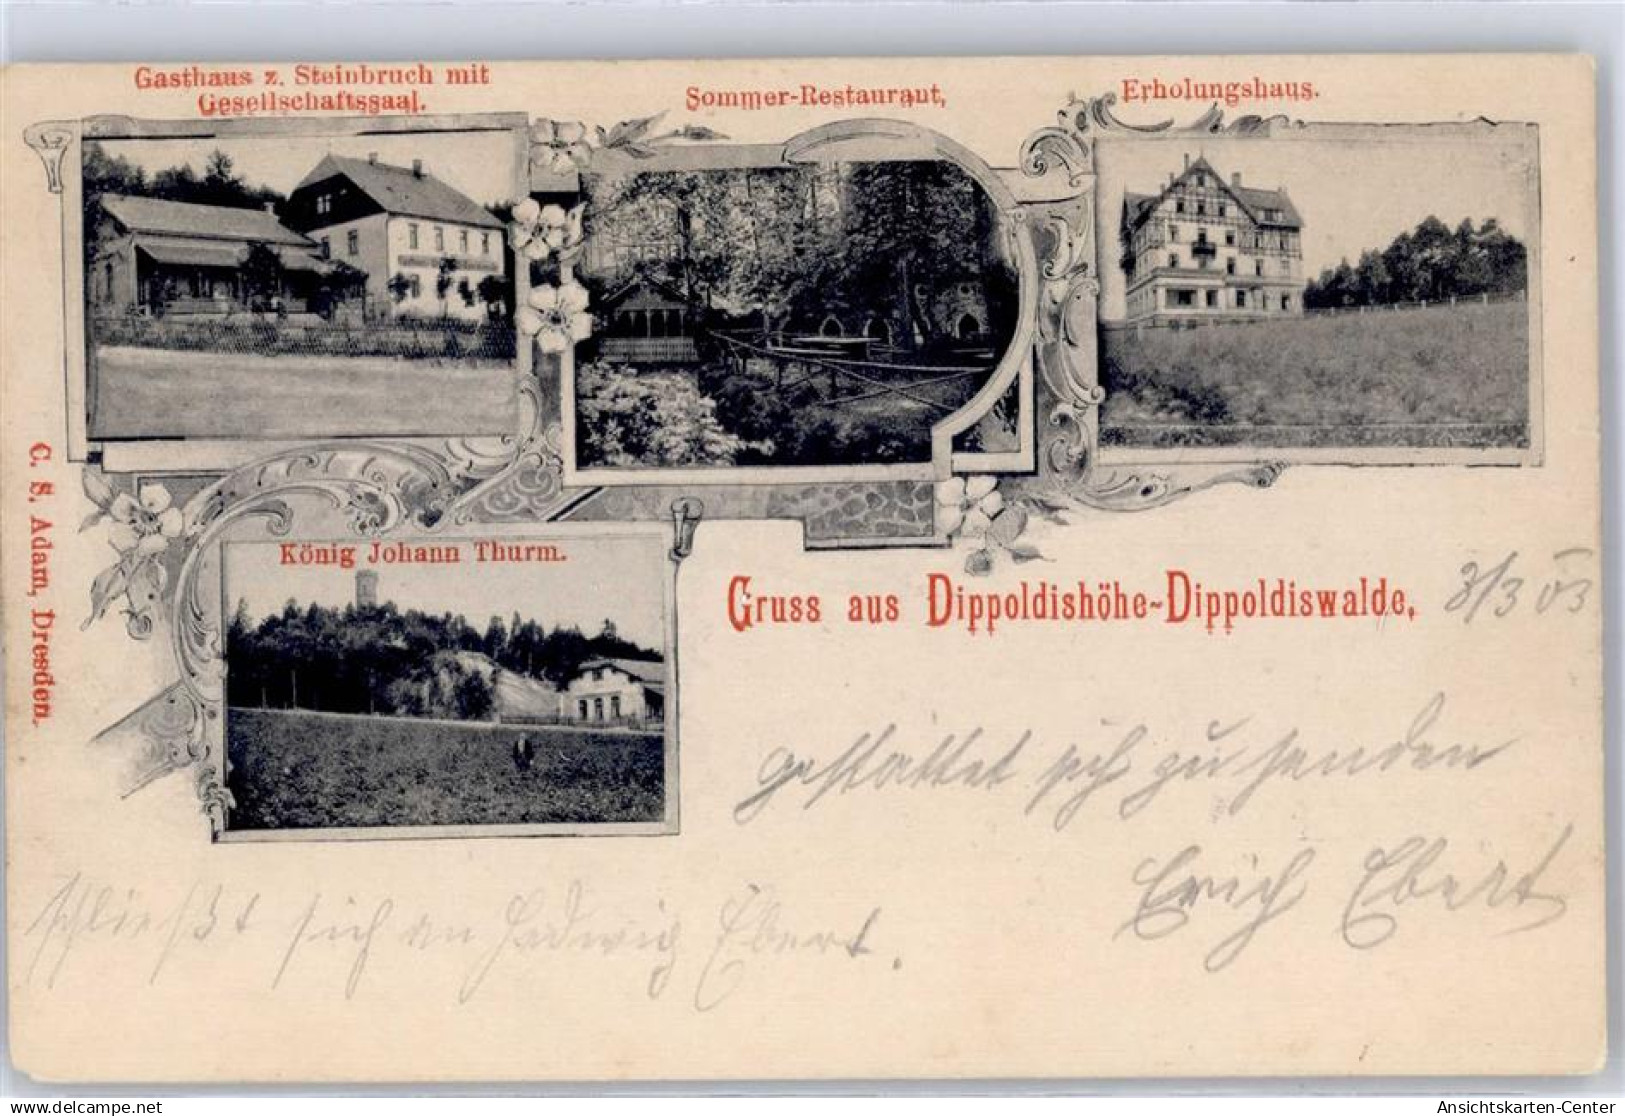 Gasthaus z. Steinbruch mit
Gesellschaftssaal.
Sommer-Restaurant,
Erholungshaus.
C. S. Adam, Dresden.
König Johann Thurm.
Gruss aus Dippoldishöhe-Dippoldiswalde,
8/3 03
gestattet sich zu senden
Erich Ebert
schließt sich an Hedwig Ebert.
delcampe.net
Ansichtskarten-Center